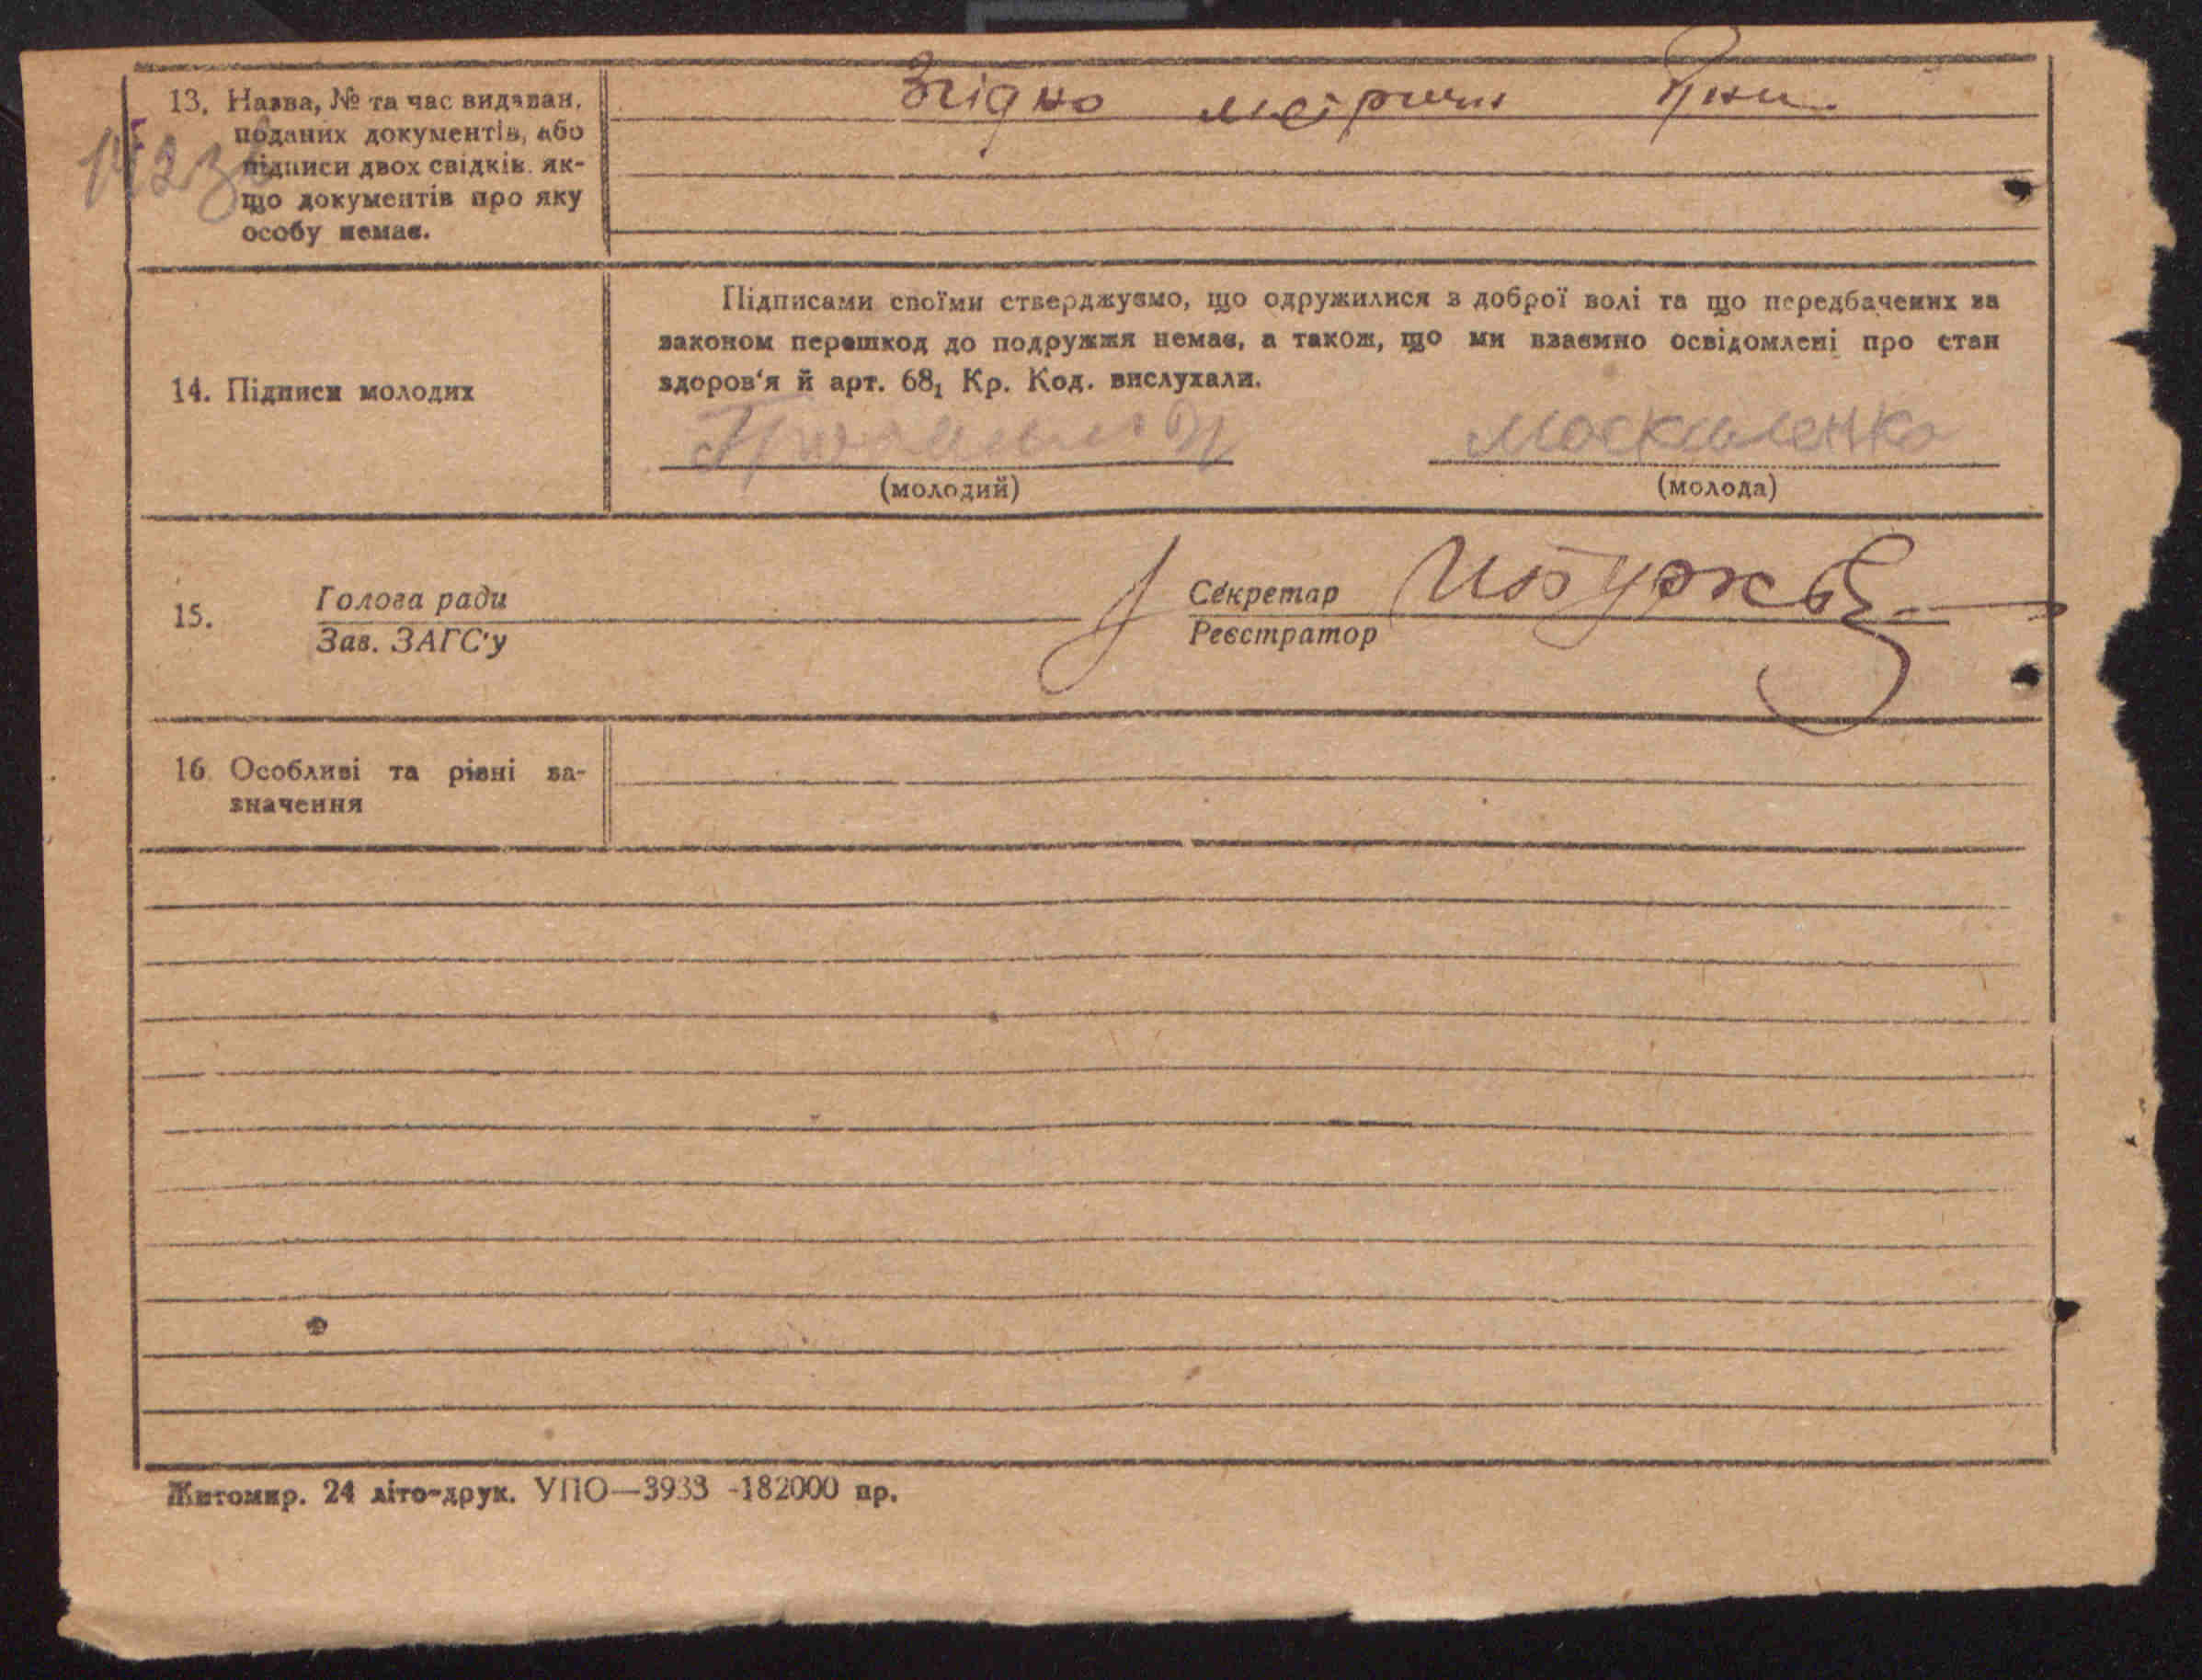 13. Назва, № та час видаван.
поданих документів, або
підписи двох свідків як-
що документів про яку
особу немає.
Згідно метричн
Підписами своїми стверджуємо, що одружилися з доброї волі та що передбачених за
законом перешкод до подружжя немає, а також, що ми взаємно освідомлені про стан
здоров'я й арт. 68₁ Кр. Код. вислухали.
14. Підписи молодих
Москаленко
(молодий) (молода)
15. Голова ради Секретар
Зав. ЗАГС'у Реєстратор
16. Особливі та різні за-
значення
Житомир. 24 літо-друк. УПО—3933 -182000 пр.